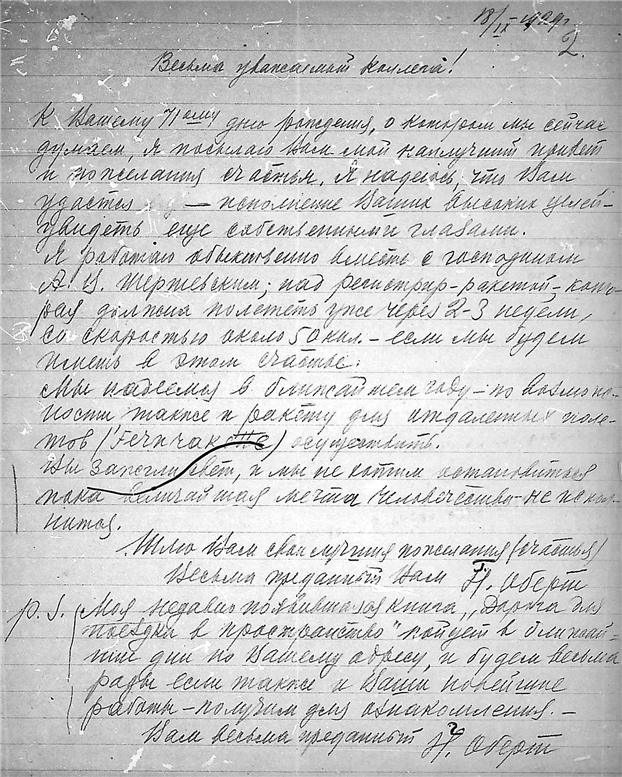 18/IX 1929г.
2.
Весьма уважаемый коллега!
К Вашему 71ому дню рождения, о котором мы сейчас
думаем, я посылаю Вам мой наилучший привет
и пожелания счастья. Я надеюсь, что Вам
удастся — исполнение Ваших высоких целей –
увидеть еще собственными глазами.
Я работаю обыкновенно вместе с господином
А. Шершевским; над регистрир-ракетой, кото-
рая должна полететь уже через 2-3 недели,
со скоростью около 50 кил. – если мы будем
иметь в этом счастье.
Мы надеемся в ближайшем году – по возмож-
ности также и ракету для отдаленных поле-
тов ( ) осуществить.
Вы зажгли свет, и мы не хотим остановиться
пока величайшая мечта человечества – не испол-
нится.
Шлю Вам свои лучшия пожелания (счастья)
Весьма преданный Вам Н. Оберт
p.s. Моя недавно появившаяся книга „Дорога для
поездки в пространство" пойдет в ближай-
шие дни по Вашему адресу, и будем весьма
рады если также и Ваши новейшие
работы – получим для ознакомления. –
Вам весьма преданный Н. Оберт